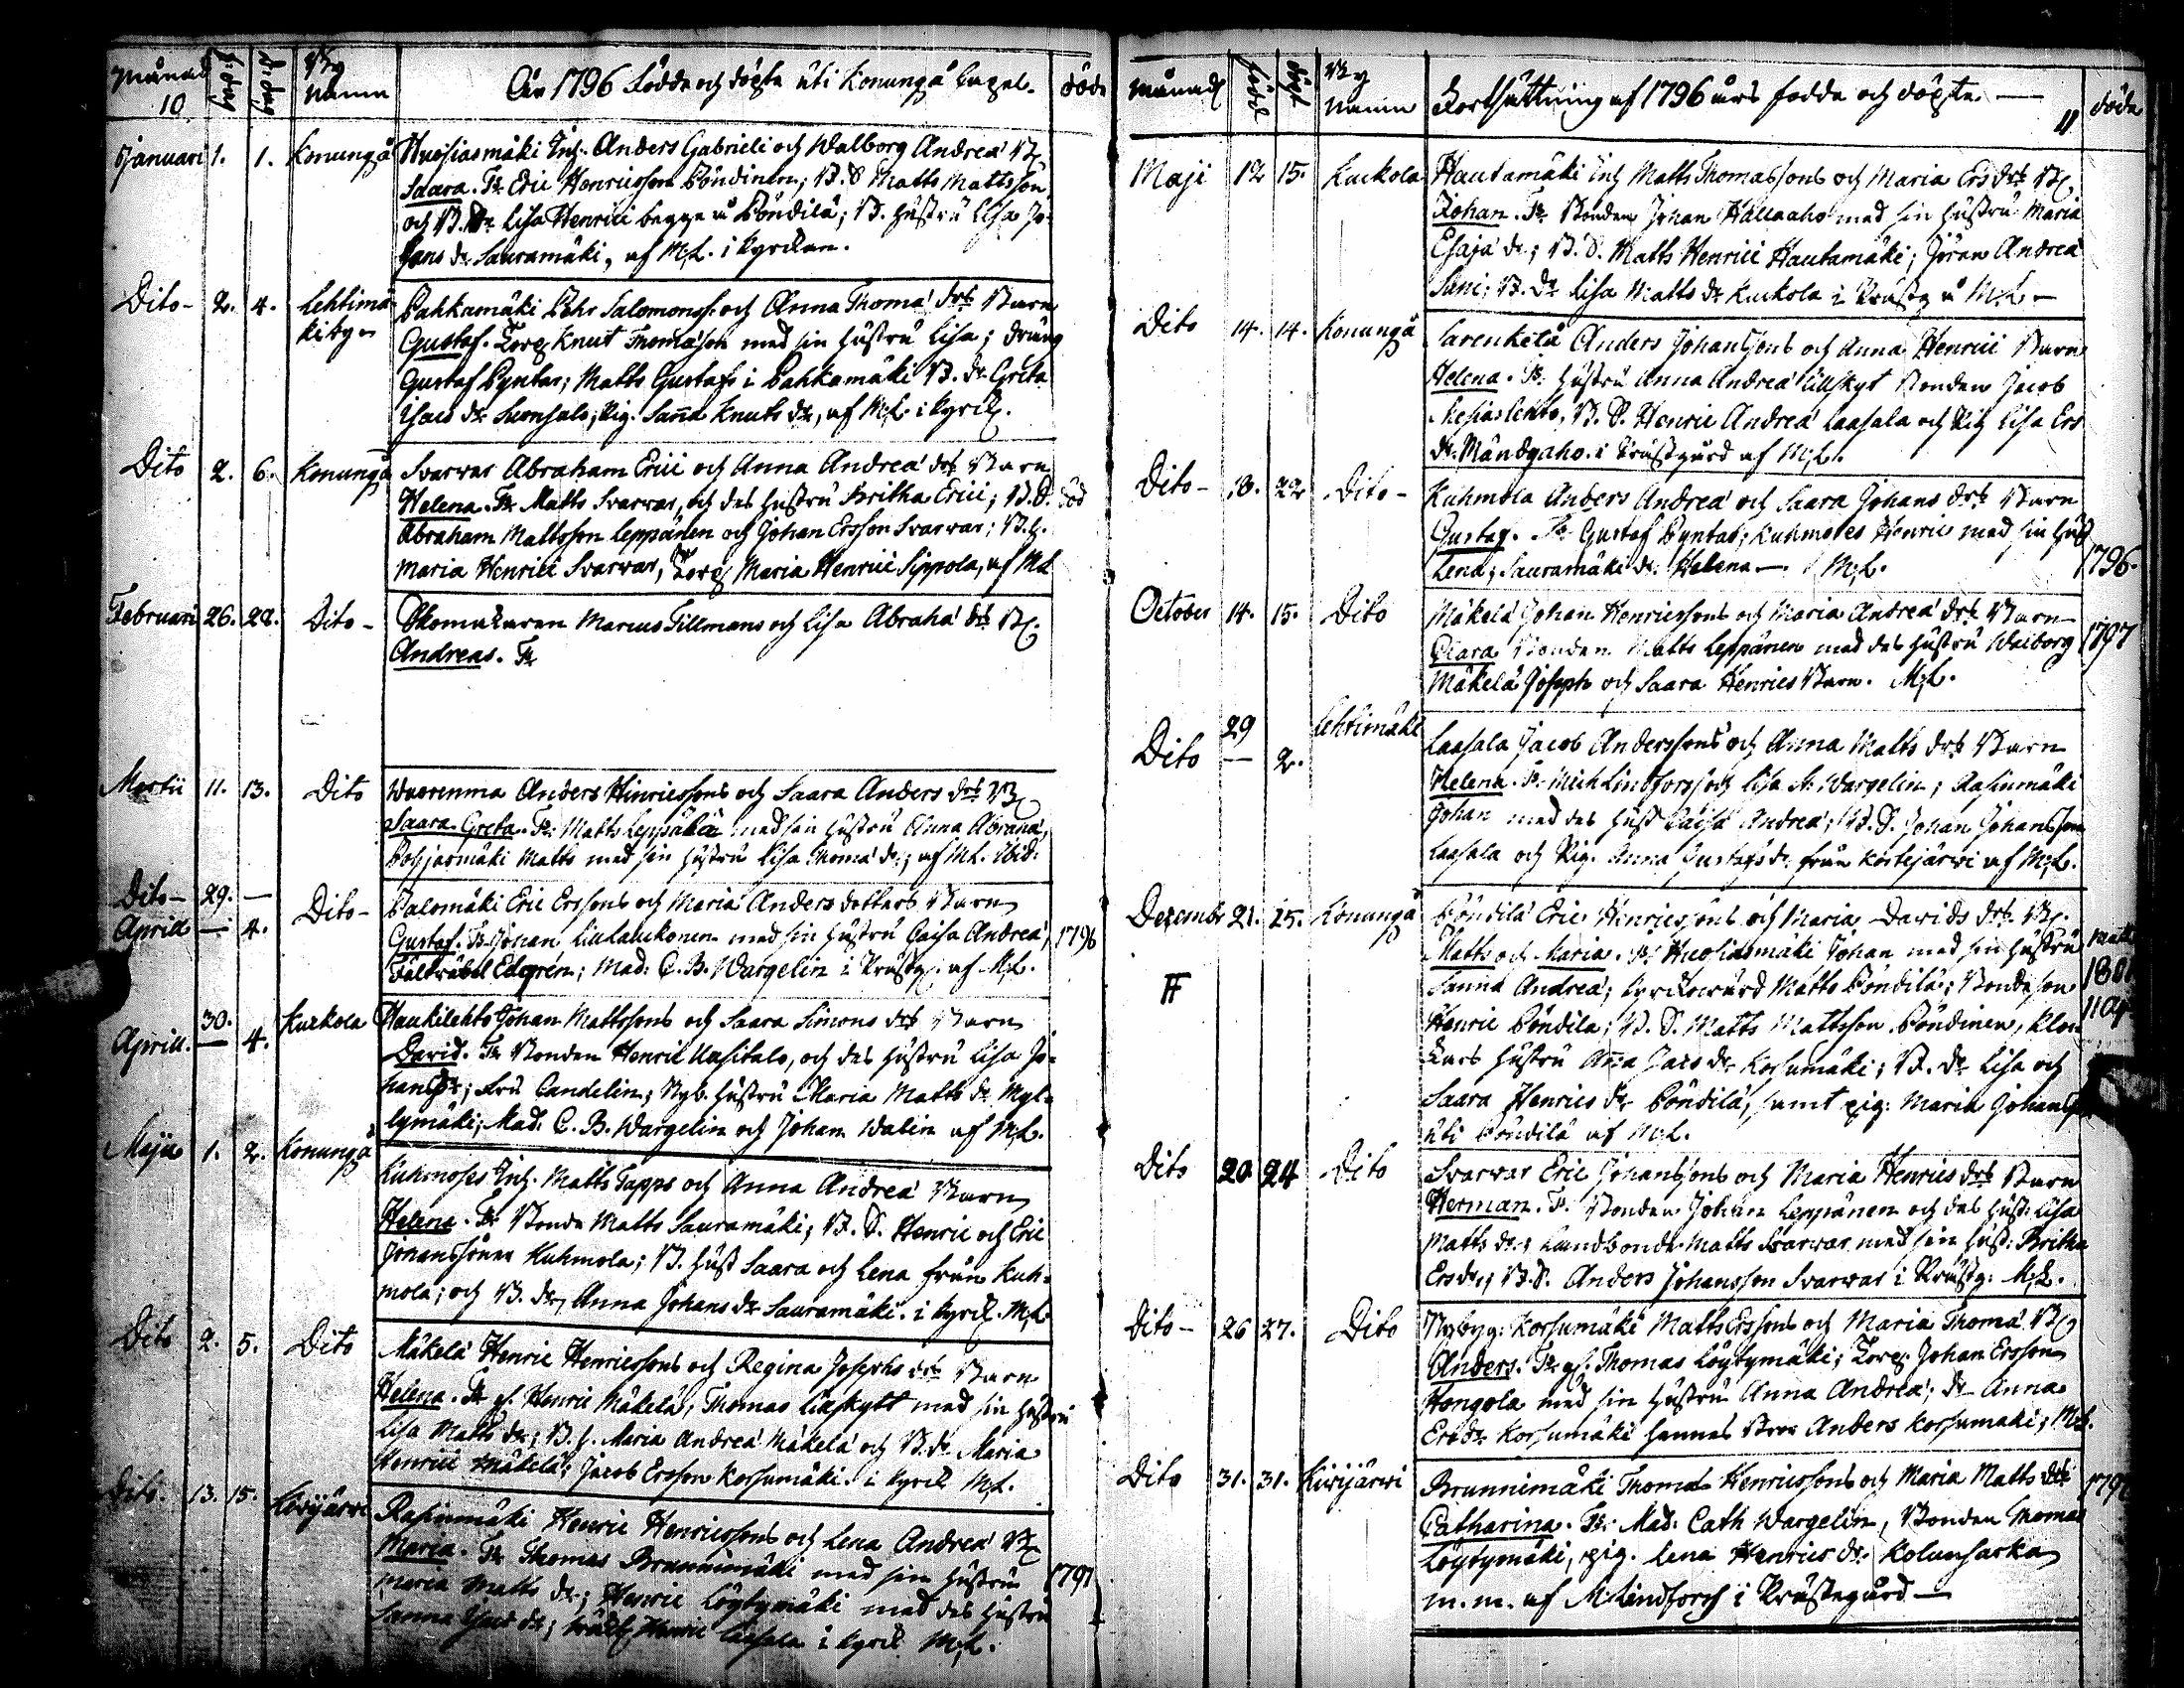 Månad 10. f: dag d: dag By Namn År 1796 Födde och döpte uti Konungå Capel. döde
Januari 1. 1. Konungå Huosiasmäki Inh. Anders Gabrieli och Walborg Andreæ B.
Saara. Fr. Eric Henricsson Pöndinen; B. S. Matts Mattsson
och B. Dr. Lisa Henrici begge å Pöndilä; B. hustru Lisa Jo-
hans dr. Sauramäki, af M. L. i kyrckan.
Dito - 2. 4. Lehtimä Pahkamäki Pehr Salomonss. och Anna Thomæ drs Barn
kiby - Gustaf. Torp. Knut Thomasson med sin hustru Lisa; dräng
Gustaf Pyntar; Matts Gustafs i Pahkamäki B. dr. Greta
Isacs dr. Suonsalo; Pig. Sanna Knuts dr, af M. L. i kyrck.
Dito 2. 6. Konungå Svarvar Abraham Erici och Anna Andreæ drs Barn
Helena. Fr. Matts Svarvar, och des hustru Britha Erici; B. D. död
Abraham Mattsson Leppänen och Johan Ersson Svarvar; B. h.
Maria Henrici Svarvar, Torp. Maria Henrici Sippola, af M L
Februari 26. 28. Dito - Skomakaren Marcus Tillmans och Lisa Abraha drs B.
Andreas. Fr
Martii 11. 13. Dito Wuorenma Anders Hinricssons och Saara Anders drs B
Saara Greta. Fr: Matts Leppälä med sin hustru Anna Abraha,
Pohjasmäki Matts med sin hustru Lisa Thomæ dr.; af M L. Ibid:
Dito - 29. — Dito - Palomäki Eric Erssons och Maria Anders dotters Barn
Aprill — 4. Gustaf. Fr. Johan Lillalukonen med sin hustru Caisa Andreæ, 1796
Fältväbel Edgren; Mad: C. B. Wargelin i Prästg. af M. L.
30. Kuckola Haukilehto Johan Mattssons och Saara Simons drs Barn
Aprill. — 4. David. Fr Bonden Henric Uusitalo, och des hustru Lisa Jo-
hans dr; Fru Candelin; Nyb. hustru Maria Matts dr. Myl-
lymäki; Mad: C. B. Wargelin och Johan Walin af M. L.
Maji 1. 2. Konungå Kuhmoses Inh. Matts Tapps och Anna Andreæ Barn
Helena. Fr Bonde Matts Sauramäki; B. S. Henric och Eric
Johanssöner Kuhmola; B. Hust Saara och Lena från Kuh-
mola; och B. dr, Anna Johans dr Sauramäki. i kyrck. M. L.
Dito 2. 5. Dito Mäkelä Henric Henricssons och Regina Josephs drs Barn
Helena. Fr gl. Henric Mäkelä, Thomas Lillskytt med sin hustru
Lisa Matts dr.; B. h. Maria Andreæ Mäkelä och B. dr. Maria
Henrici Mäkelä; Jacob Ersson Korsumäki. i kyrck M. L.
Dito. 13. 15. Kivijärvi Rasinmäki Henric Henricssons och Lena Andreæ B
Maria. Fr Thomas Brunnimäki med sin hustru 1797
Maria Matts dr; Henric Löytymäki med des hustru
Sanna Isacs dr; Henric Laasala i kyrck M. L.
Månad född döpt By Namn Fortsättning af 1796 års födde och döpte — 11 döde
Maji 12 15. Kuckola Hautamäki Inh Matts Thomassons och Maria Ers drs B
Johan. Fr. Bonden Johan Hallaaho med sin hustru Maria
Esajæ dr.; B. S. Matts Henrici Hautamäki; Jöran Andreæ
Sani; B. Dr Lisa Matts dr Kuckola i Prästg. å M. L. -
Dito 14. 14. Konungå Sarenketå Anders Johanssons och Anna Henrici Barn
Helena. Fr. hustru Anna Andreæ Lillskyt Bonden Jacob
Mesiaslehto, B. S. Henric Andreæ Laasala och Pig Lisa Ers
dr. Mändyaho. i Prästgård af M. L.
Dito - 18. 22 Dito - Kuhmola Anders Andreæ och Saara Johans drs Barn
Gustaf. Fr. Gustaf Pyntar; Kuhmoses Henric med sin hust
Lena; Sauramäki dr: Helena —. M. L. 1796.
October 14. 15. Dito Mäkelä Johan Henricssons och Maria Andreæ drs Barn
Clara Bonden Matts Leppänen med des hustru Walborg 1797
Mäkelä Joseph och Saara Henrics Barn. M. L.
29 Lehtimäki
Dito — 2. Laasala Jacob Anderssons och Anna Matts drs Barn
Helena. Fr. Mich Lindforss och Lisa St. Wargelin; Rasinmäki
Johan med des Hust Caisa Andreæ; B. S. Johan Johansson
Laasala och Pig. Anna Gustafs dr. från Kortejärvi af M. L.
Dezember 21. 25. Konungå Pöndilä Eric Henricssons och Maria Davids drs. B.
Matts och Maria. Fr. Huosiasmäki Johan med sin hustru Matt
Sanna Andreæ; kyrckovärd Matts Pöndilä; Bondeson 1801
Henric Pöndilä; B. S. Matts Mattsson Pöndinen, Kloc
kars hustru Anna Jacs dr Korsumäki; B. dr Lisa och
Saara Henrics dr Pöndilä, samt pig: Maria Johans dr
uti Pöndilä af M. L.
Dito 20 24 Dito Svarvar Eric Johanssons och Maria Henrics drs Barn
Herman. F. Bonden Johan Leppänen och des hust: Lisa
Matts dr.; Landbonde Matts Svarvar med sin hust: Britha
Ers dr; B. S. Anders Johansson Svarvar i Prästg: M. L.
Dito - 26 27. Dito Nybyg: Korsumäki Matts Erssons och Maria Thomæ B
Anders. Fr. gl. Thomas Löytymäki; Torp. Johan Ersson
Hongola med sin hustru Anna Andreæ; dr Anna
Ers dr Korsumäki hennes Bror Anders Korsumäki; M. L.
Dito 31. 31. Kivijärvi Brunnimäki Thomas Henricssons och Maria Matts drs 1797
Catharina. Fr: Mad: Cath Wargelin, Bonden Thomas
Löytymäki, pig. Lena Henrics dr. Kolunsarka
m. m. af M. Lindforss i Prästegård —